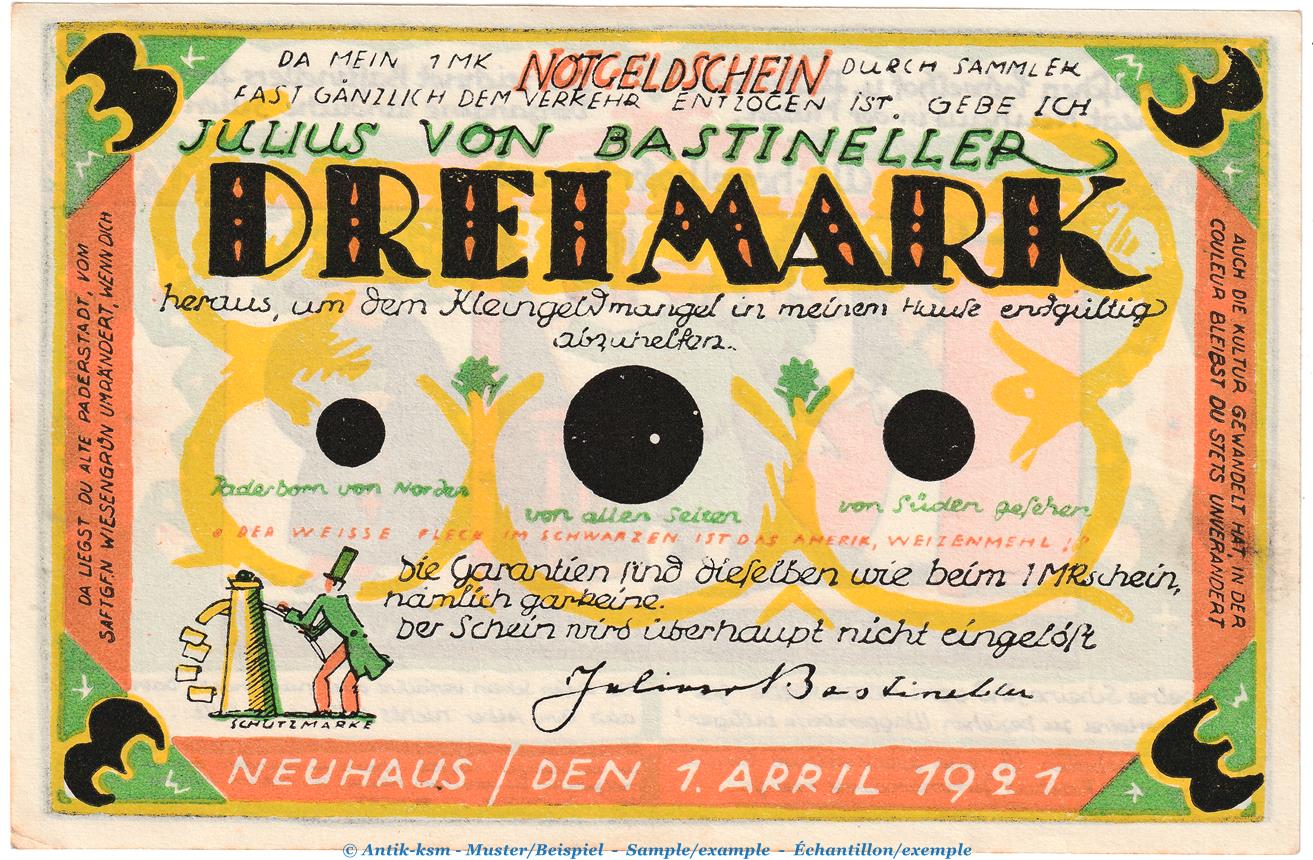 DA MEIN 1 MK NOTGELDSCHEIN DURCH SAMMLER
FAST GÄNZLICH DEM VERKEHR ENTZOGEN IST. GEBE ICH
JULIUS VON BASTINELLER
DREI MARK
heraus, um dem Kleingeldmangel in meinem Hause endgültig
abzuhelfen.
3
3
DA LIEGST DU ALTE PADERSTADT, VOM
SAFTGEN WIESENGRÜN UMRÄNDERT, WENN DICH
AUCH DIE KULTUR GEWANDELT HAT IN DER
COULEUR BLEIBST DU STETS UNVERÄNDERT
10
Paderborn von Norden
von allen Seiten
von Süden gesehen
DER WEISSE FLECK IM SCHWARZEN IST DAS AMERIK, WEIZENMEHL !!
Die Garantien sind dieselben wie beim 1 MKschein,
nämlich garkeine.
Der Schein wird überhaupt nicht eingelöst
Julius v Bastineller
SCHUTZMARKE
3
3
NEUHAUS / DEN 1. APRIL 1921
© Antik-ksm - Muster/Beispiel - Sample/example - Échantillon/exemple